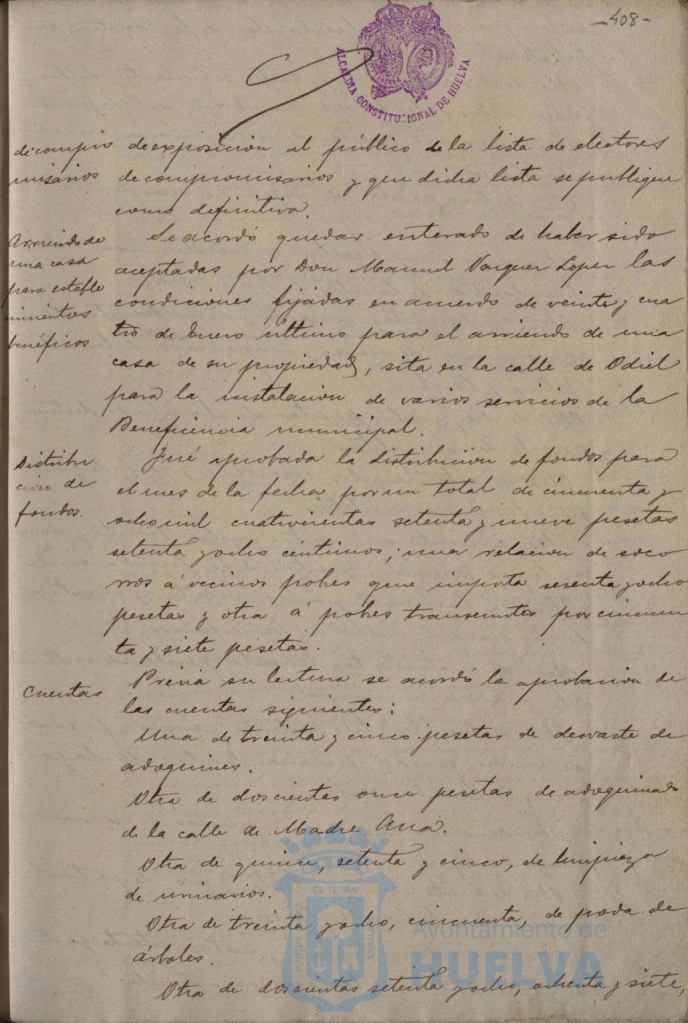 -408-
ALCALDIA CONSTITUCIONAL DE HUELVA
de compro
misarios
de exposición al público de la lista de electores
de compromisarios y que dicha lista se publique
como definitiva.
Arriendo de
una casa
para estable
cimientos
benéficos
Se acordó quedar enterado de haber sido
aceptadas por Don Manuel Vazquez Lopez las
condiciones fijadas en acuerdo de veinte y cua
tro de Enero último para el arriendo de una
casa de su propiedad, sita en la calle de Odiel
para la instalacion de varios servicios de la
Beneficencia municipal.
Distribu
cion de
fondos.
Fué aprobada la distribucion de fondos para
el mes de la fecha por un total de cincuenta y
ocho mil cuatrocientas setenta y nueve pesetas
setenta y ocho céntimos; una relacion de soco
rros á vecinos pobres que importa sesenta y ocho
pesetas y otra á pobres transeuntes por cincuen
ta y siete pesetas.
Cuentas
Prévia su lectura se acordó la aprobacion de
las cuentas siguientes:
Una de treinta y cinco pesetas de desvaste de
adoquines.
Otra de doscientas once pesetas de adoquinado
de la calle de Madre Ana.
Otra de quince, setenta y cinco, de limpieza
de urinarios.
Otra de treinta y ocho, cincuenta, de poda de
árboles.
Otra de doscientas setenta y ocho, ochenta y siete,
Ayuntamiento de
HUELVA